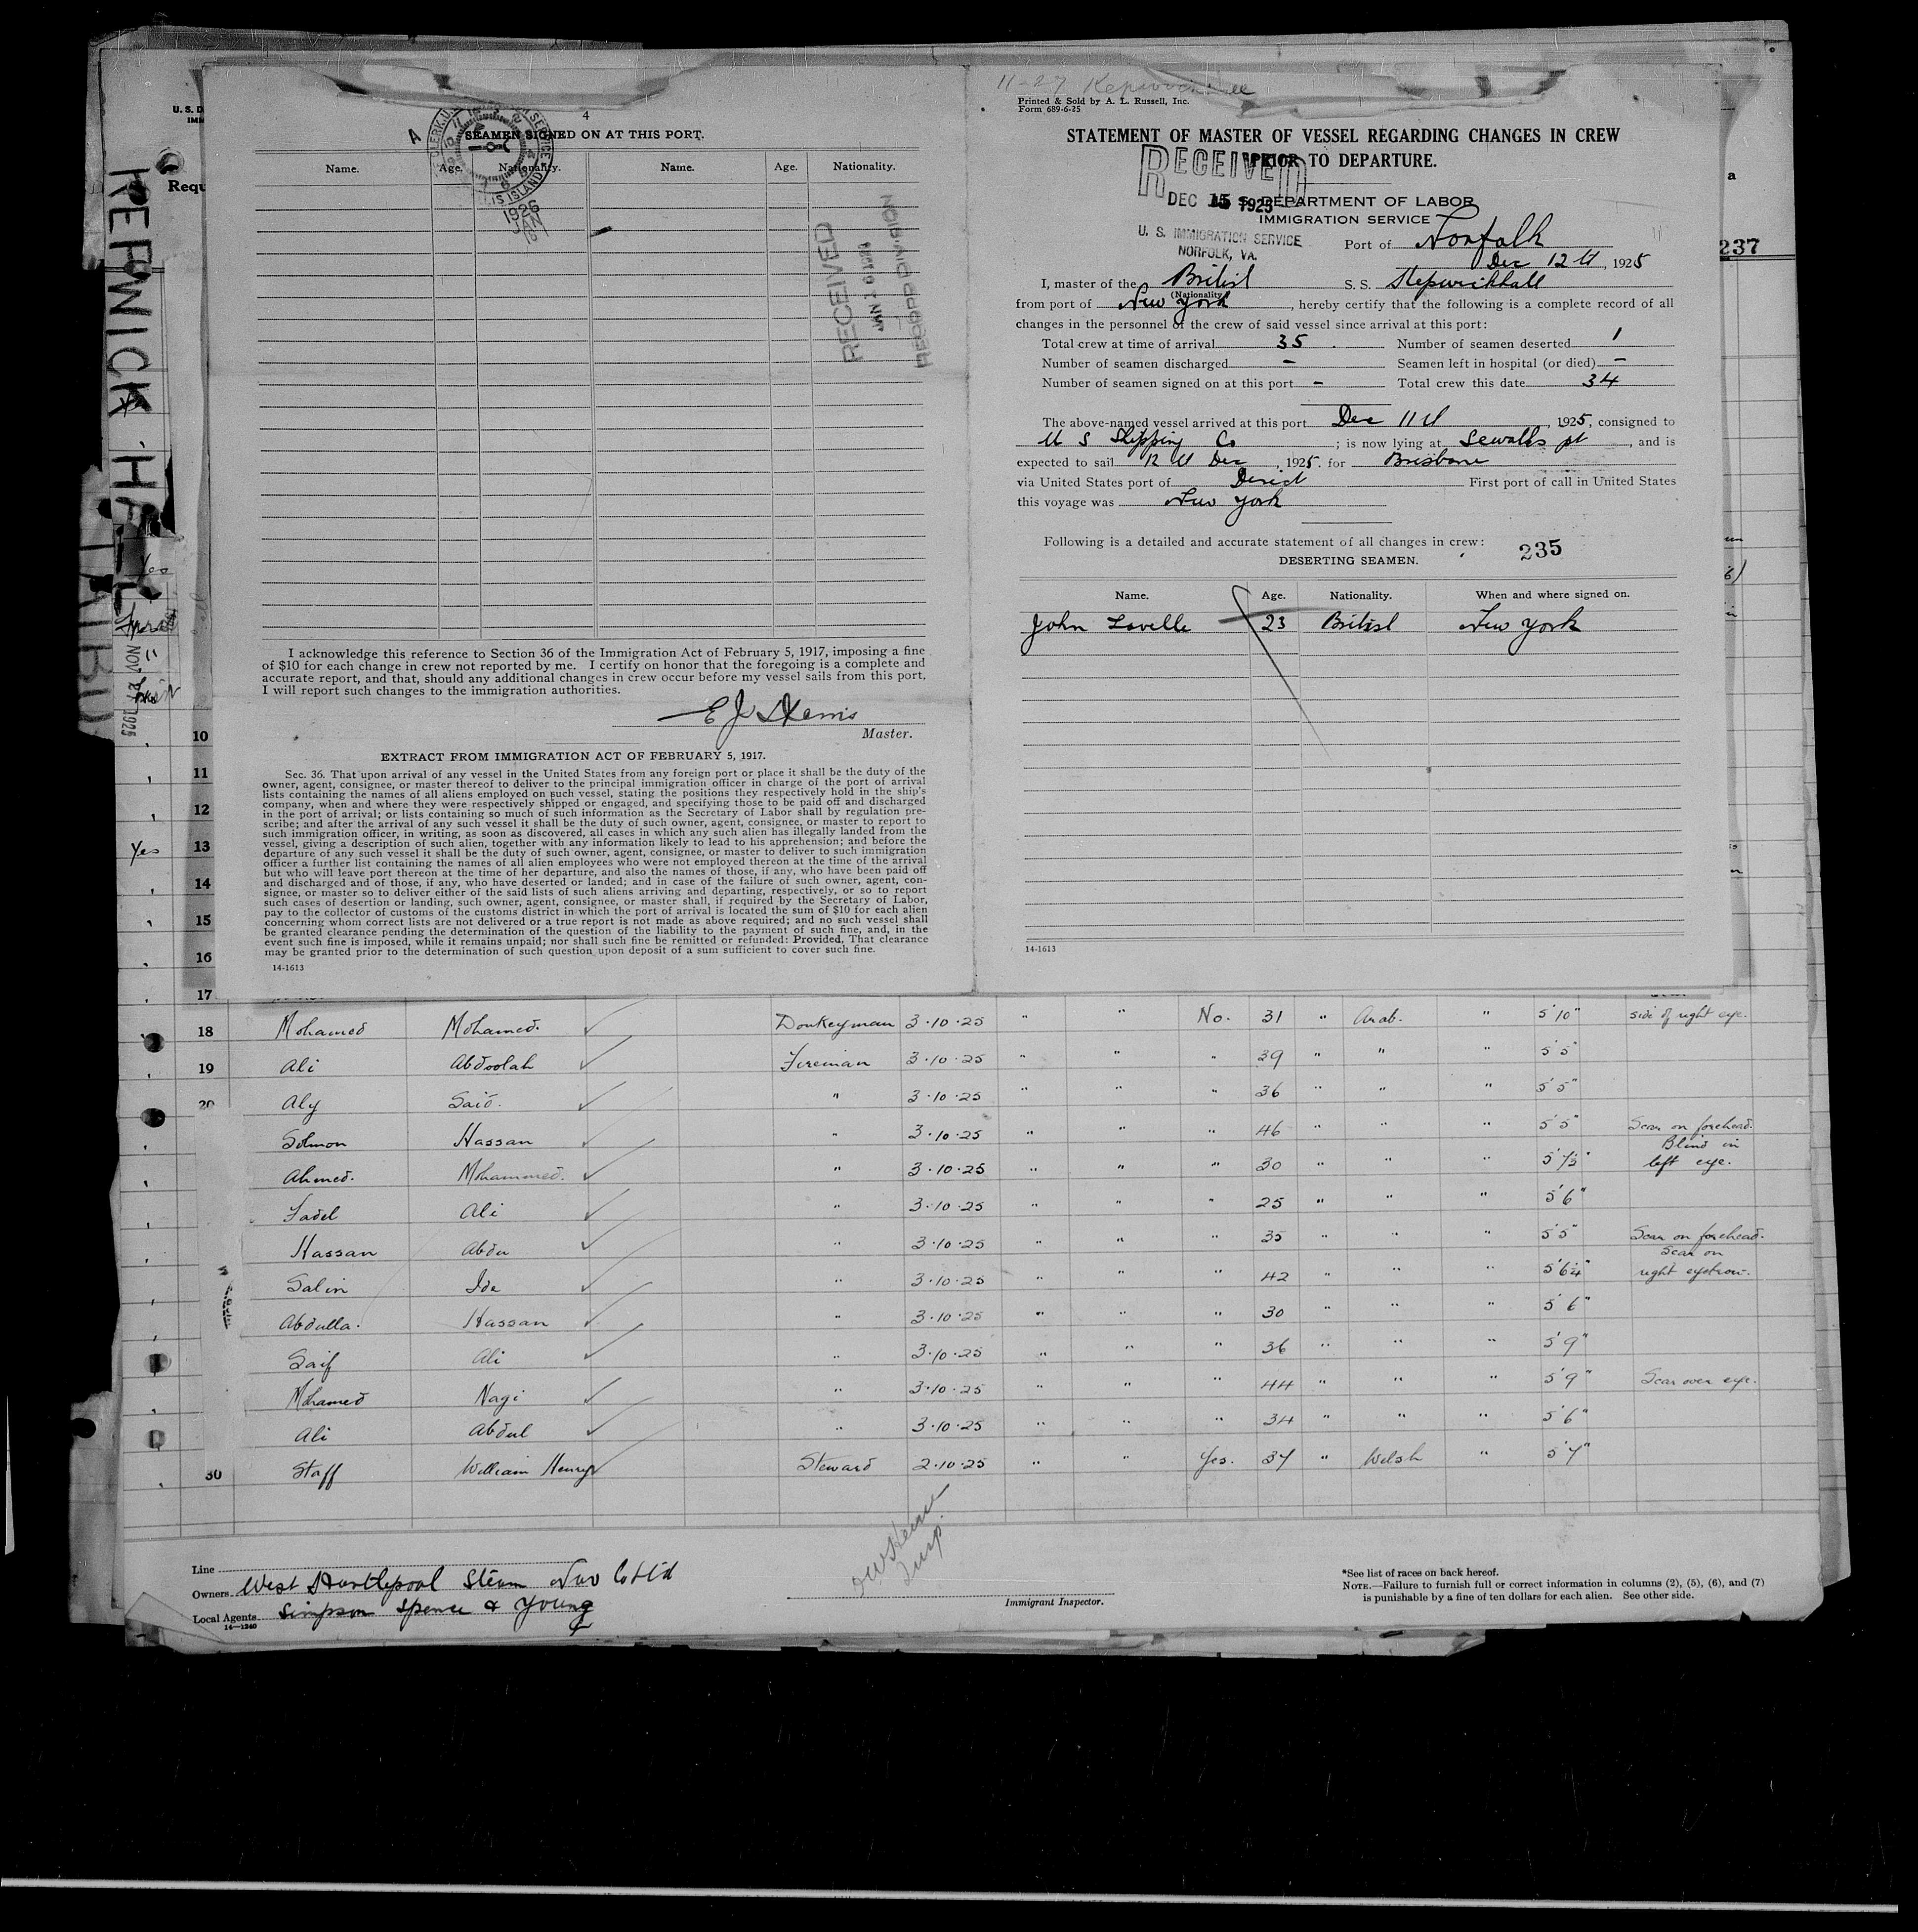 11-27 Kepwickhall
Printed & Sold by A. L. Russell, Inc.
Form 689-6-25
STATEMENT OF MASTER OF VESSEL REGARDING CHANGES IN CREW
PRIOR TO DEPARTURE.
RECEIVED
DEC 15 1925
U. S. DEPARTMENT OF LABOR
IMMIGRATION SERVICE
U. S. IMMIGRATION SERVICE
NORFOLK, VA.
Port of Norfolk
Dec 12th, 1925
I, master of the British S. S. Kepwickhall
(Nationality)
from port of New York, hereby certify that the following is a complete record of all
changes in the personnel of the crew of said vessel since arrival at this port:
Total crew at time of arrival 35 Number of seamen deserted 1
Number of seamen discharged – Seamen left in hospital (or died) –
Number of seamen signed on at this port – Total crew this date 34
The above-named vessel arrived at this port Dec 11th, 1925, consigned to
U S Shipping Co; is now lying at Sewalls pt, and is
expected to sail 12th Dec, 1925. for Brisbane
via United States port of Direct First port of call in United States
this voyage was New York
Following is a detailed and accurate statement of all changes in crew:
235
DESERTING SEAMEN.
Name. Age. Nationality. When and where signed on.
John Lavelle 23 British New York
14-1613
4
SEAMEN SIGNED ON AT THIS PORT.
Name. Age. Nationality. Name. Age. Nationality.
1926
RECEIVED
RECORD DIVISION
I acknowledge this reference to Section 36 of the Immigration Act of February 5, 1917, imposing a fine
of $10 for each change in crew not reported by me. I certify on honor that the foregoing is a complete and
accurate report, and that, should any additional changes in crew occur before my vessel sails from this port,
I will report such changes to the immigration authorities.
Master.
EXTRACT FROM IMMIGRATION ACT OF FEBRUARY 5, 1917.
Sec. 36. That upon arrival of any vessel in the United States from any foreign port or place it shall be the duty of the
owner, agent, consignee, or master thereof to deliver to the principal immigration officer in charge of the port of arrival
lists containing the names of all aliens employed on such vessel, stating the positions they respectively hold in the ship's
company, when and where they were respectively shipped or engaged, and specifying those to be paid off and discharged
in the port of arrival; or lists containing so much of such information as the Secretary of Labor shall by regulation pre-
scribe; and after the arrival of any such vessel it shall be the duty of such owner, agent, consignee, or master to report to
such immigration officer, in writing, as soon as discovered, all cases in which any such alien has illegally landed from the
vessel, giving a description of such alien, together with any information likely to lead to his apprehension; and before the
departure of any such vessel it shall be the duty of such owner, agent, consignee, or master to deliver to such immigration
officer a further list containing the names of all alien employees who were not employed thereon at the time of the arrival
but who will leave port thereon at the time of her departure, and also the names of those, if any, who have been paid off
and discharged and of those, if any, who have deserted or landed; and in case of the failure of such owner, agent, con-
signee, or master so to deliver either of the said lists of such aliens arriving and departing, respectively, or so to report
such cases of desertion or landing, such owner, agent, consignee, or master shall, if required by the Secretary of Labor,
pay to the collector of customs of the customs district in which the port of arrival is located the sum of $10 for each alien
concerning whom correct lists are not delivered or a true report is not made as above required; and no such vessel shall
be granted clearance pending the determination of the question of the liability to the payment of such fine, and, in the
event such fine is imposed, while it remains unpaid; nor shall such fine be remitted or refunded: Provided, That clearance
may be granted prior to the determination of such question upon deposit of a sum sufficient to cover such fine.
14-1613
237
KEPWICK HALL
NOV 27 1925
Yes
10
11
12
13
14
15
16
17
18 Mohamed Mohamed. Donkeyman 3·10·25 " " No. 31 " Arab. " 5'10" side of right eye.
19 Ali Abdoolah Fireman 3·10·25 " " " 39 " " " 5'5"
20 Aly Said. " 3·10·25 " " " 36 " " " 5'5"
Solmon Hassan " 3·10·25 " " " 46 " " " 5'5" Scar on forehead.
Ahmed. Mohammed. " 3·10·25 " " " 30 " " " Blind in left eye.
Fadel Ali " 3·10·25 " " " 25 " " " 5'6"
Hassan Abdu " 3·10·25 " " " 35 " " " 5'5" Scar on forehead.
Salin Ide " 3·10·25 " " " 42 " " " Scar on right eyebrow.
Abdulla. Hassan " 3·10·25 " " " 30 " " " 5'6"
Saif Ali " 3·10·25 " " " 36 " " " 5'9"
Mohamed Nagi " 3·10·25 " " " 44 " " " 5'9" Scar over eye.
Ali Abdul " 3·10·25 " " " 34 " " " 5'6"
30 Staff William Henry Steward 2·10·25 " " Yes. 37 " Welsh " 5'7"
Line
Owners West Hartlepool Steam Nav Co Ltd
Local Agents Simpson Spence & Young
14—1240
Immigrant Inspector.
*See list of races on back hereof.
NOTE.—Failure to furnish full or correct information in columns (2), (5), (6), and (7)
is punishable by a fine of ten dollars for each alien. See other side.